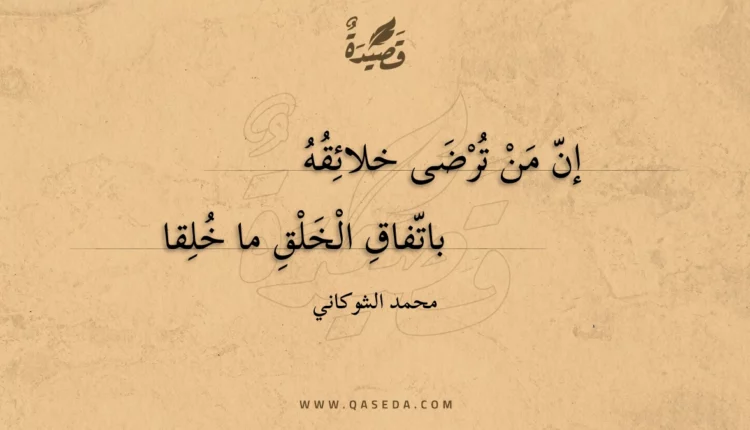 قَصِيدَةٌ
إنّ مَنْ تُرْضَى خلائِقُهُ
باتّفاقِ الْخَلْقِ ما خُلِقا
محمد الشوكاني
WWW.QASEDA.COM